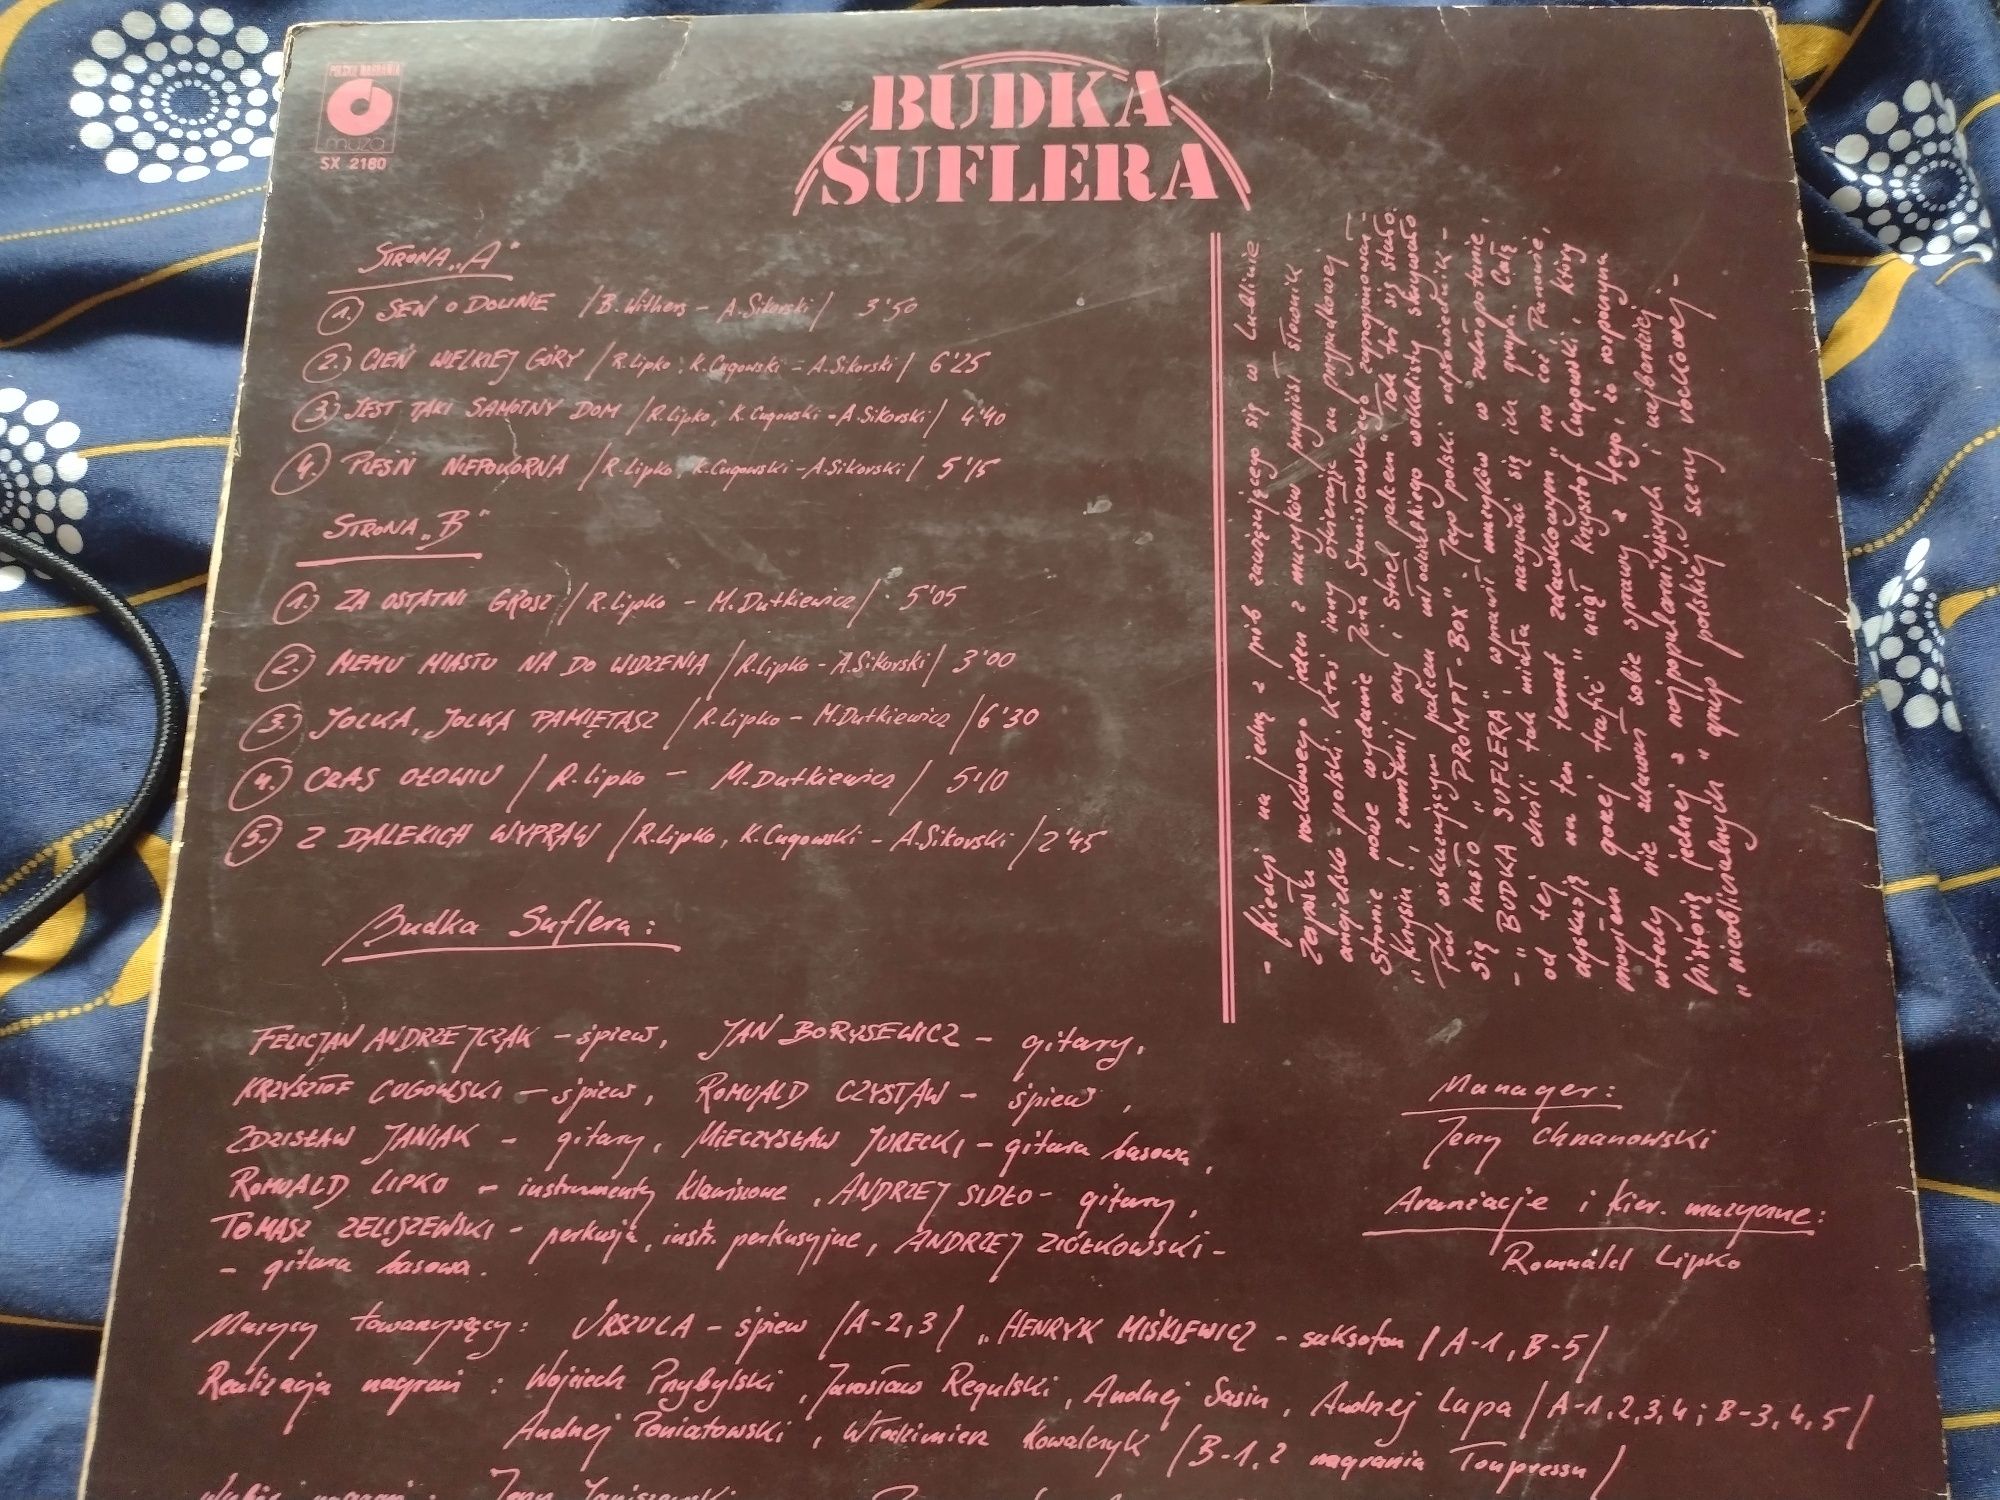 POLSKIE NAGRANIA
muza
SX 2160
BUDKA
SUFLERA
STRONA „A"
1. SEN O DOLINIE /B. Withers – A. Sikorski/ 3'50
2. CIEŃ WIELKIEJ GÓRY /R. Lipko, K. Cugowski – A. Sikorski/ 6'25
3. JEST TAKI SAMOTNY DOM /R. Lipko, K. Cugowski – A. Sikorski/ 4'40
4. PIEŚŃ NIEPOKORNA /R. Lipko, K. Cugowski – A. Sikorski/ 5'15
STRONA „B"
1. ZA OSTATNI GROSZ /R. Lipko – M. Dutkiewicz/ 5'05
2. MEMU MIASTU NA DO WIDZENIA /R. Lipko – A. Sikorski/ 3'00
3. JOLKA, JOLKA PAMIĘTASZ /R. Lipko – M. Dutkiewicz/ 6'30
4. CZAS OŁOWIU /R. Lipko – M. Dutkiewicz/ 5'10
5. Z DALEKICH WYPRAW /R. Lipko, K. Cugowski – A. Sikorski/ 2'45
Budka Suflera:
FELICJAN ANDRZEJCZAK – śpiew, JAN BORYSEWICZ – gitary,
KRZYSZTOF CUGOWSKI – śpiew, ROMUALD CZYSTAW – śpiew,
ZDZISŁAW JANIAK – gitary, MIECZYSŁAW JURECKI – gitara basowa,
ROMUALD LIPKO – instrumenty klawiszowe, ANDRZEJ SIDŁO – gitary,
TOMASZ ZELISZEWSKI – perkusja, instr. perkusyjne, ANDRZEJ ZIÓŁKOWSKI –
– gitara basowa.
Muzycy towarzyszący: URSZULA – śpiew /A-2,3/, HENRYK MIŚKIEWICZ – saksofon /A-1, B-5/
Realizacja nagrań: Wojciech Przybylski, Jarosław Regulski, Andrzej Sasin, Andrzej Lupa /A-1,2,3,4; B-3,4,5/
Andrzej Poniatowski, Włodzimierz Kowalczyk /B-1,2 nagrania Tonpressu/
– Kiedyś na jedną z prób zawiązującego się w Lublinie
zespołu rockowego jeden z muzyków przyniósł słownik
angielsko-polski. Ktoś inny otwierając na przypadkowej
stronie nowe wydanie Jana Stanisławskiego zaproponował –
„Krzysiu, zamknij oczy i strzel palcem". Tak też się stało.
Pod wskazującym palcem młodziutkiego wokalisty skrywało
się hasło „PROMPT-BOX". Jego polski odpowiednik –
– „BUDKA SUFLERA", wprawił muzyków w zakłopotanie,
od tej chwili tak miała nazywać się ich grupa. Całą
dyskusję na ten temat zdawkowym „no cóż Panowie,
mogłem gorzej trafić" uciął Krzysztof Cugowski, który
wtedy nie zdawał sobie sprawy z tego, że rozpoczyna
historię jednej z najpopularniejszych i najbardziej
„nieobliczalnych" grup polskiej sceny rockowej –
Manager:
Jerzy Chrzanowski
Aranżacje i kier. muzyczne:
Romuald Lipko